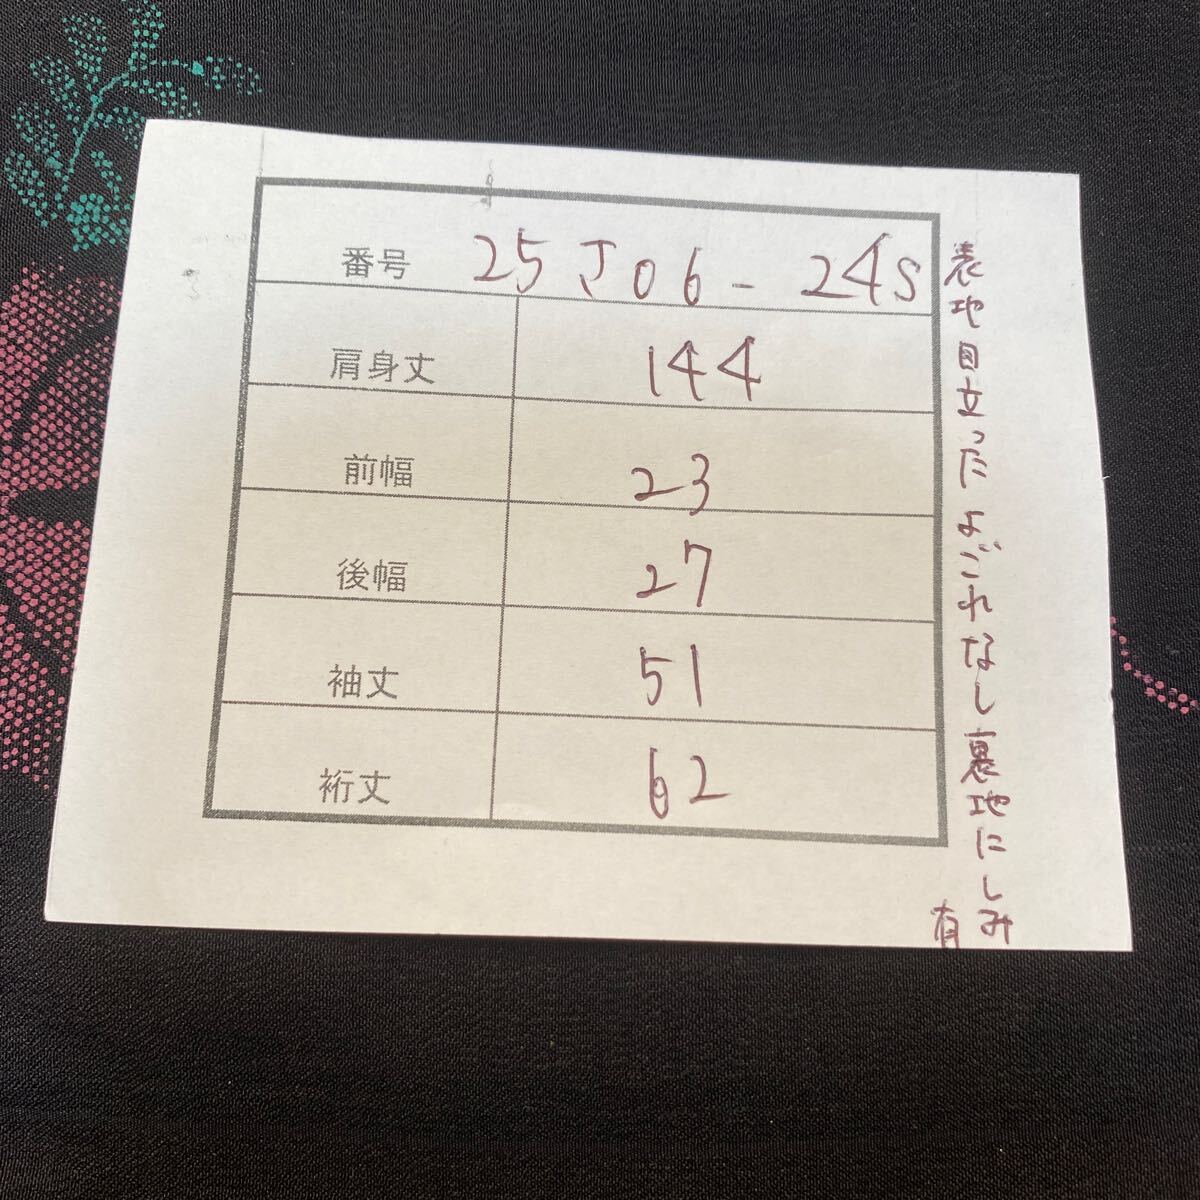 番号 25J06-24S
肩身丈 144
前幅 23
後幅 27
袖丈 51
裄丈 62
表地目立ったよごれなし裏地にしみ
有